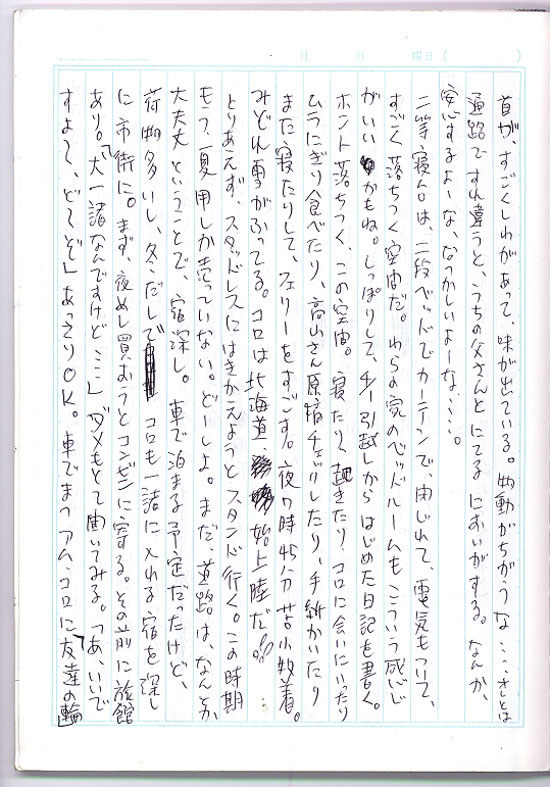 月 日 曜日( )
首が、すごくしわがあって、味が出ている。 動がちがうな……さとは
通路ですれ違うと、うちの父さんとにてるにおいがする。なんか、
安心するよーな、なつかしいよーな……。
二等寝台は、二段ベッドでカーテンで、閉じれて、電気もついて、
すごく落ちつく空間だ。わらの家のベッドルームもこういう感じ
がいいかもね。しっぽりして、引越しからはじめた日記を書く。
ホント落ちつく、この空間。寝たり、起きたり、コロに会いにいったり
ムラにぎり食べたり、高山さん原稿チェックしたり、手紙かいたり
また寝たりして、フェリーをすごす。夜7時45分苫小牧着。
みぞれ雪がふってる。コロは北海道 始上陸だ。!!
とりあえず、スタッドレスにはきかえようとスタンド行く。この時期
もう、夏用しか売っていない。どーしよ。まだ、道路は、なんとか
大夫丈ということで、宿探し。車で泊まる予定だったけど、
荷物多いし、冬だしで コロも一諸に入れる宿を探し
に市街に。まず、夜めし買おうとコンビニに寄る。その前に旅館
あり。「犬一諸なんですけど…」ダメもとで聞いてみる。「あ、いいで
すよ〜、どーぞ」あっさりOK。車でまつアム・コロに「友達の輪」